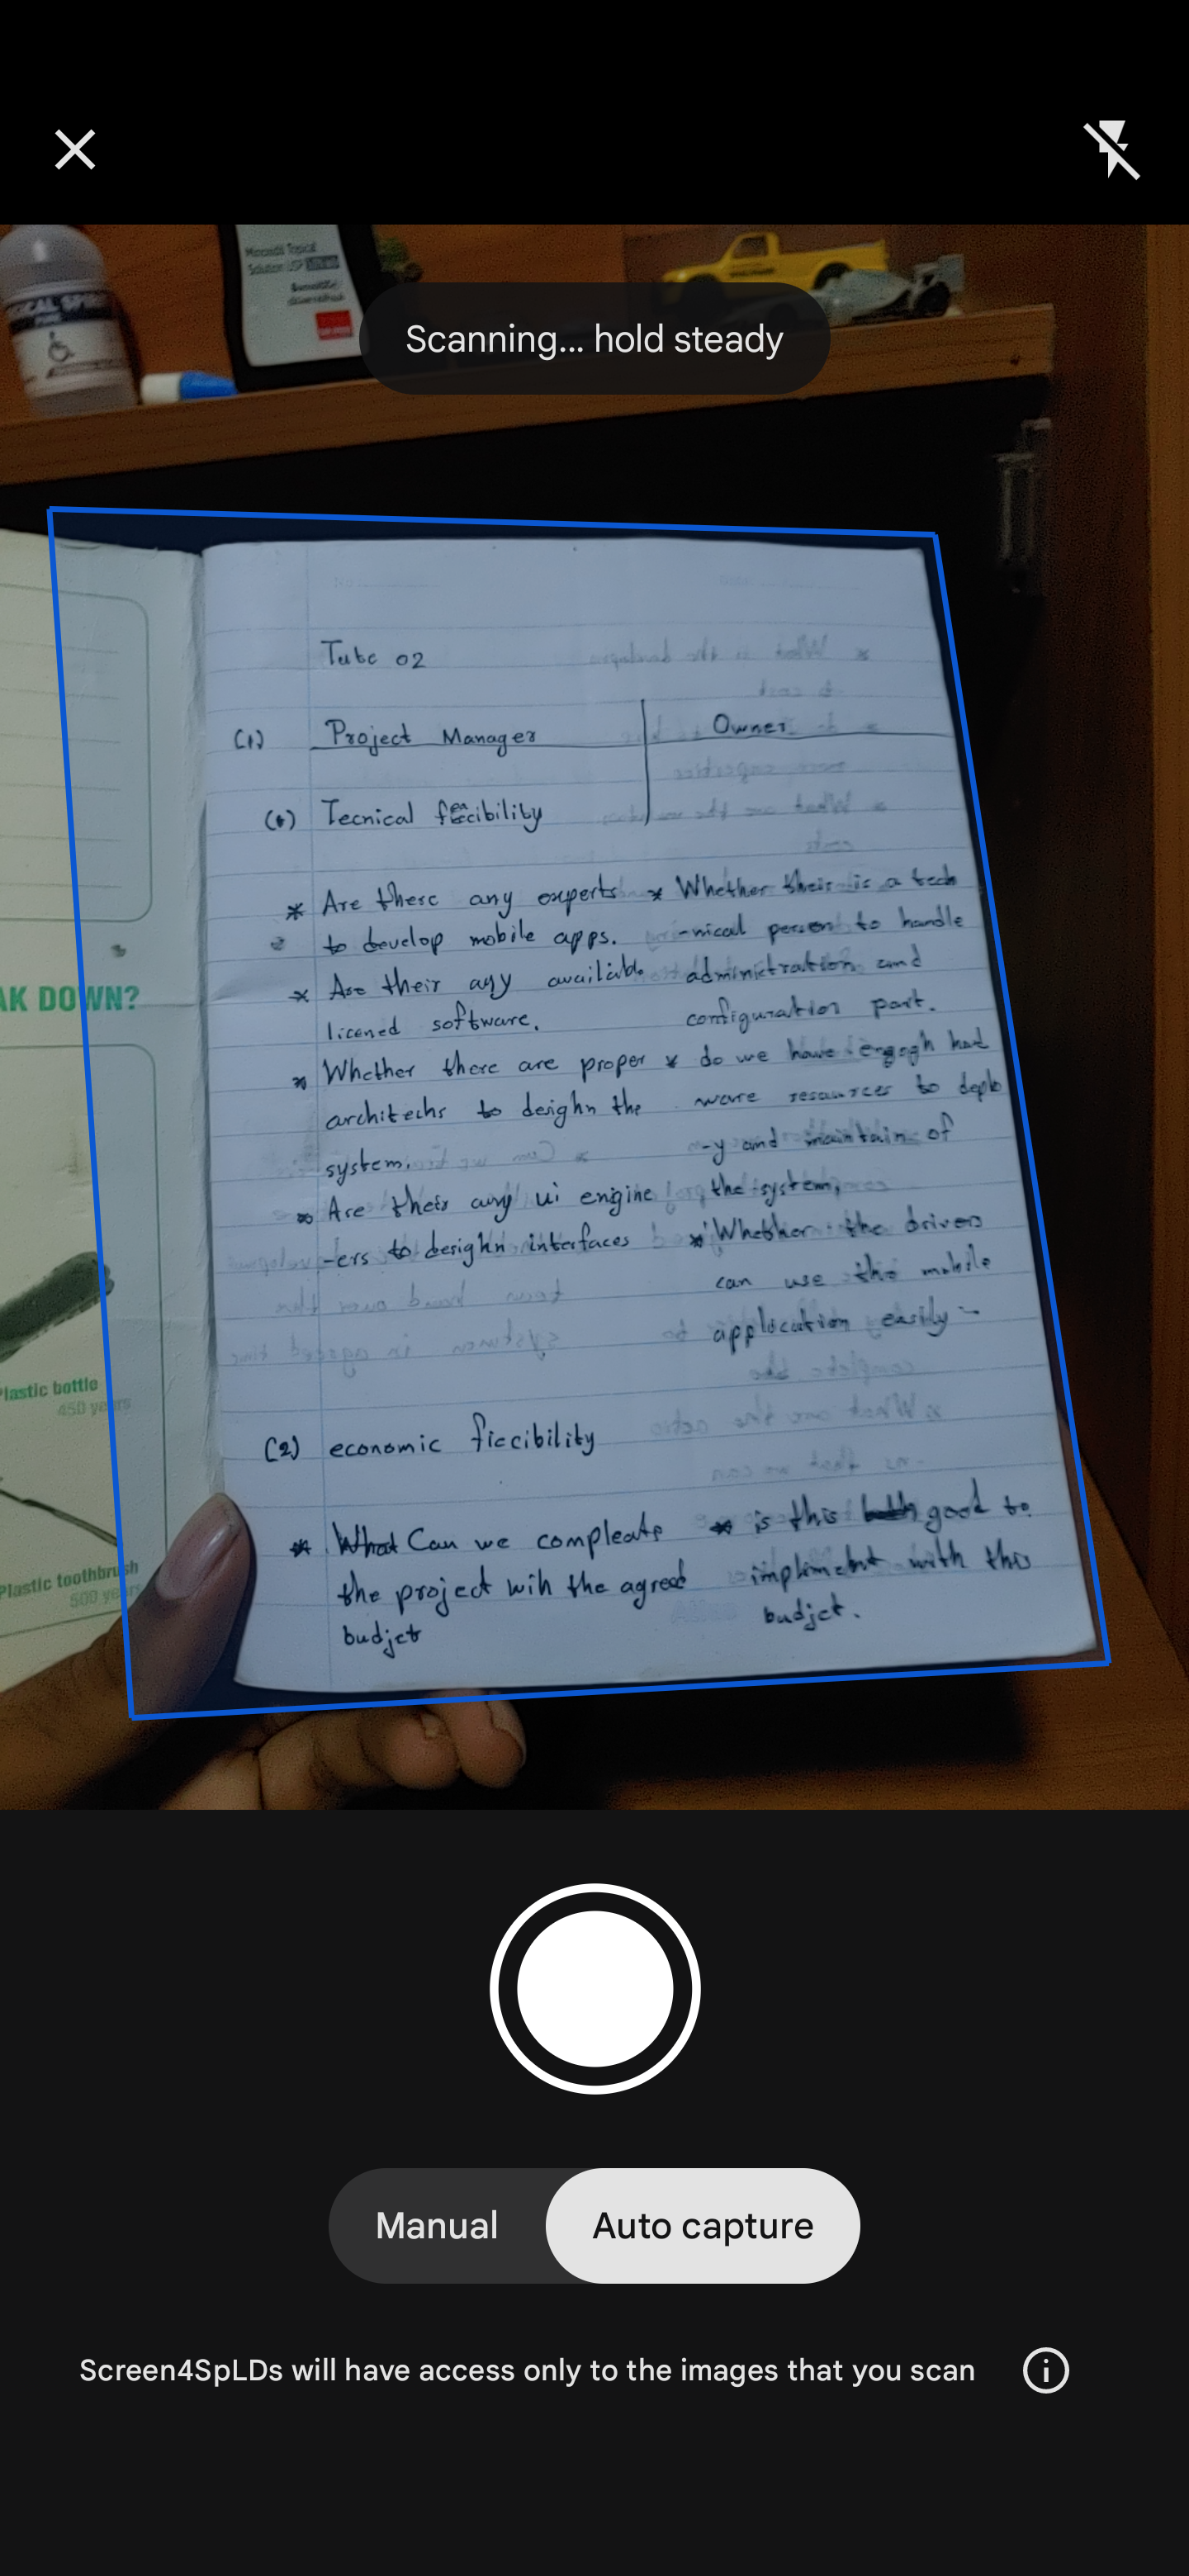 Minoxidil Topical
Solution USP
CAL SPI
Scanning... hold steady
Tute 02
(1) Project Manager
Owner
(*) Tecnical feacibility
* Are there any experts
to develop mobile apps.
* Are their any available
licened software.
* Whether there are proper
architechs to deighn the
system.
* Are their any ui engine
-ers to desighn interfaces
* Whether their is a tech
-nical person to handle
administration and
configuration part.
* do we have engogh had
ware resources to deplo
-y and maintain of
the system,
* Whether the drivers
can use this mobile
applocation easily
(2) economic ficcibility
* What Can we compleate
the project wih the agreed
budjet
* is this good to
implement with this
budjet.
AK DOWN?
Plastic bottle
450 years
Plastic toothbrush
500 years
Manual
Auto capture
Screen4SpLDs will have access only to the images that you scan